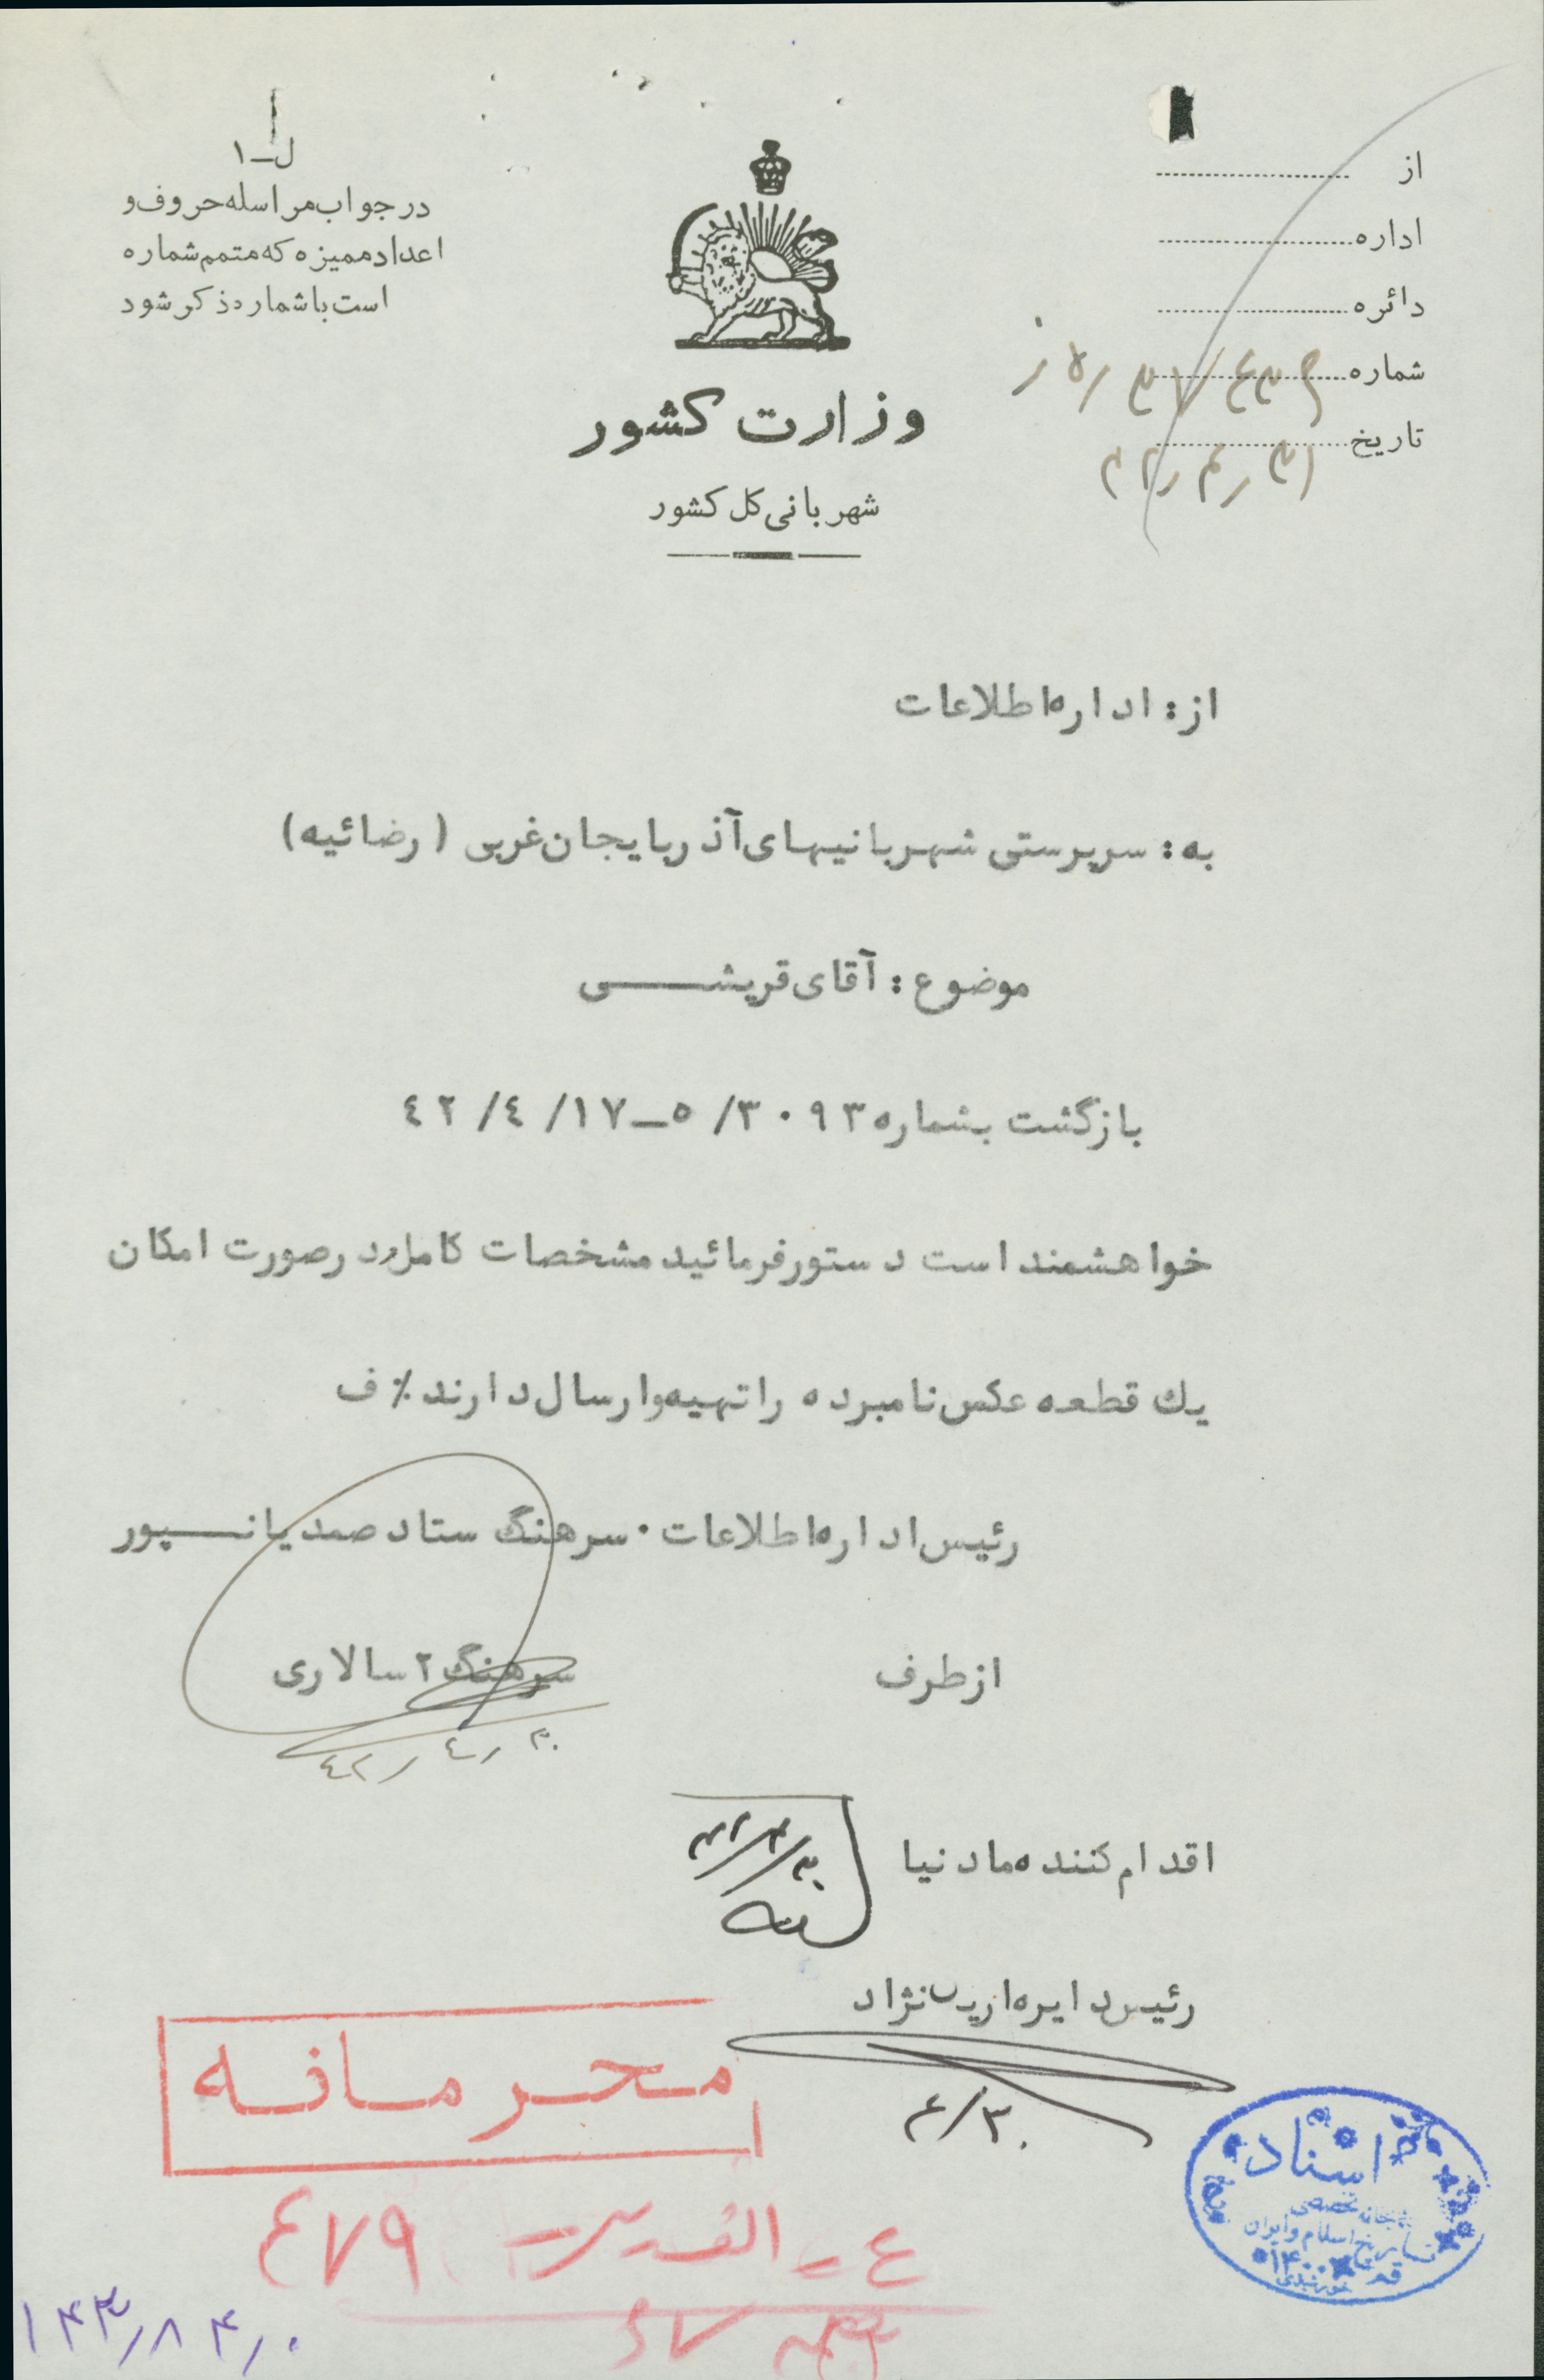 ل-۱
در جواب مراسله حروف و
اعداد ممیزه که متمم شماره
است با شماره ذکر شود
وزارت کشور
شهربانی کل کشور
از
اداره
دائره
شماره
تاریخ
از: اداره اطلاعات
به: سرپرستی شهربانیهای آذربایجان غربی (رضائیه)
موضوع: آقای قریشی
بازگشت بشماره ۳۰۹۳/۵-۱۷/۴/۴۲
خواهشمند است دستور فرمائید مشخصات کامل و در صورت امکان
یك قطعه عکس نامبرده را تهیه و ارسال دارند٪ ف
رئیس اداره اطلاعات. سرهنگ ستاد صمدیانپور
از طرف سرهنگ ۲ سالاری
۴۲/۴/۳۰
اقدام کننده مادنیا
۴۲/۴/۳۰
رئیس دایره آریان نژاد
۴/۳۰
محرمانه
۴۷۹
اسناد
تخصصی
تاریخ اسلام و ایران
قم
۱۴۰۰
خورشیدی